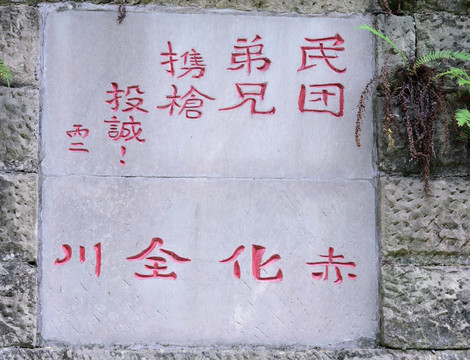 民团
弟兄
携槍
投誠！
赤化全川